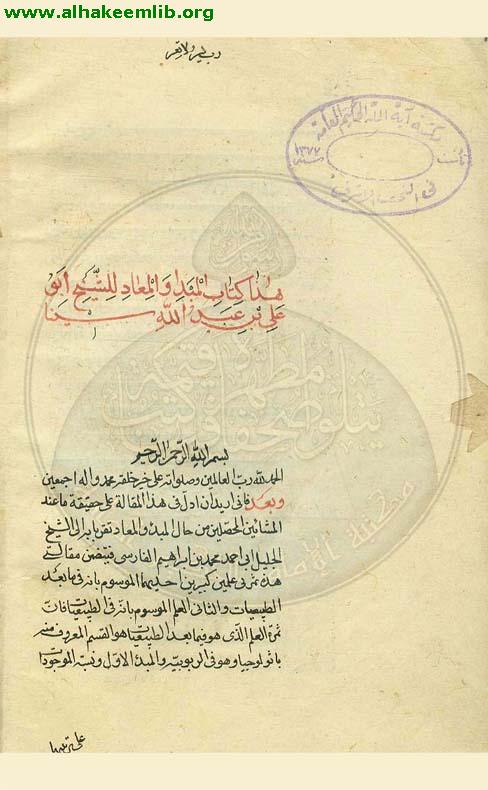 www.alhakeemlib.org
رب يسر ولا تعسر
مكتبة آية الله الحكيم العامة
تأسست
سنة ١٣٧٧
في النجف الاشرف
هذا كتاب المبدا والمعاد للشيخ ابو
علي بن عبد الله سينا
بسم الله الرحمن الرحيم
الحمد لله رب العالمين وصلواته على خير خلقه محمد واله اجمعين
وبعد فاني اريد ان ادل في هذا المقالة على حقيقة ما عند
المشائين المحصلين من حال المبدء والمعاد تقربا به الى الشيخ
الجليل ابي احمد محمد بن ابراهيم الفارسي فيتضمن مقالتي
هذه ثمرتي علمين كبيرين احديهما الموسوم بانه في ما بعد
الطبيعيات والثاني العلم الموسوم بانه في الطبيعيات فان
ثمرة العلم الذي هو فيما بعد الطبيعيات هو القسم المعروف منه
باثولوجيا وهو في الربوبية والمبدء الاول ونسبة الموجودات
على ترتيبها